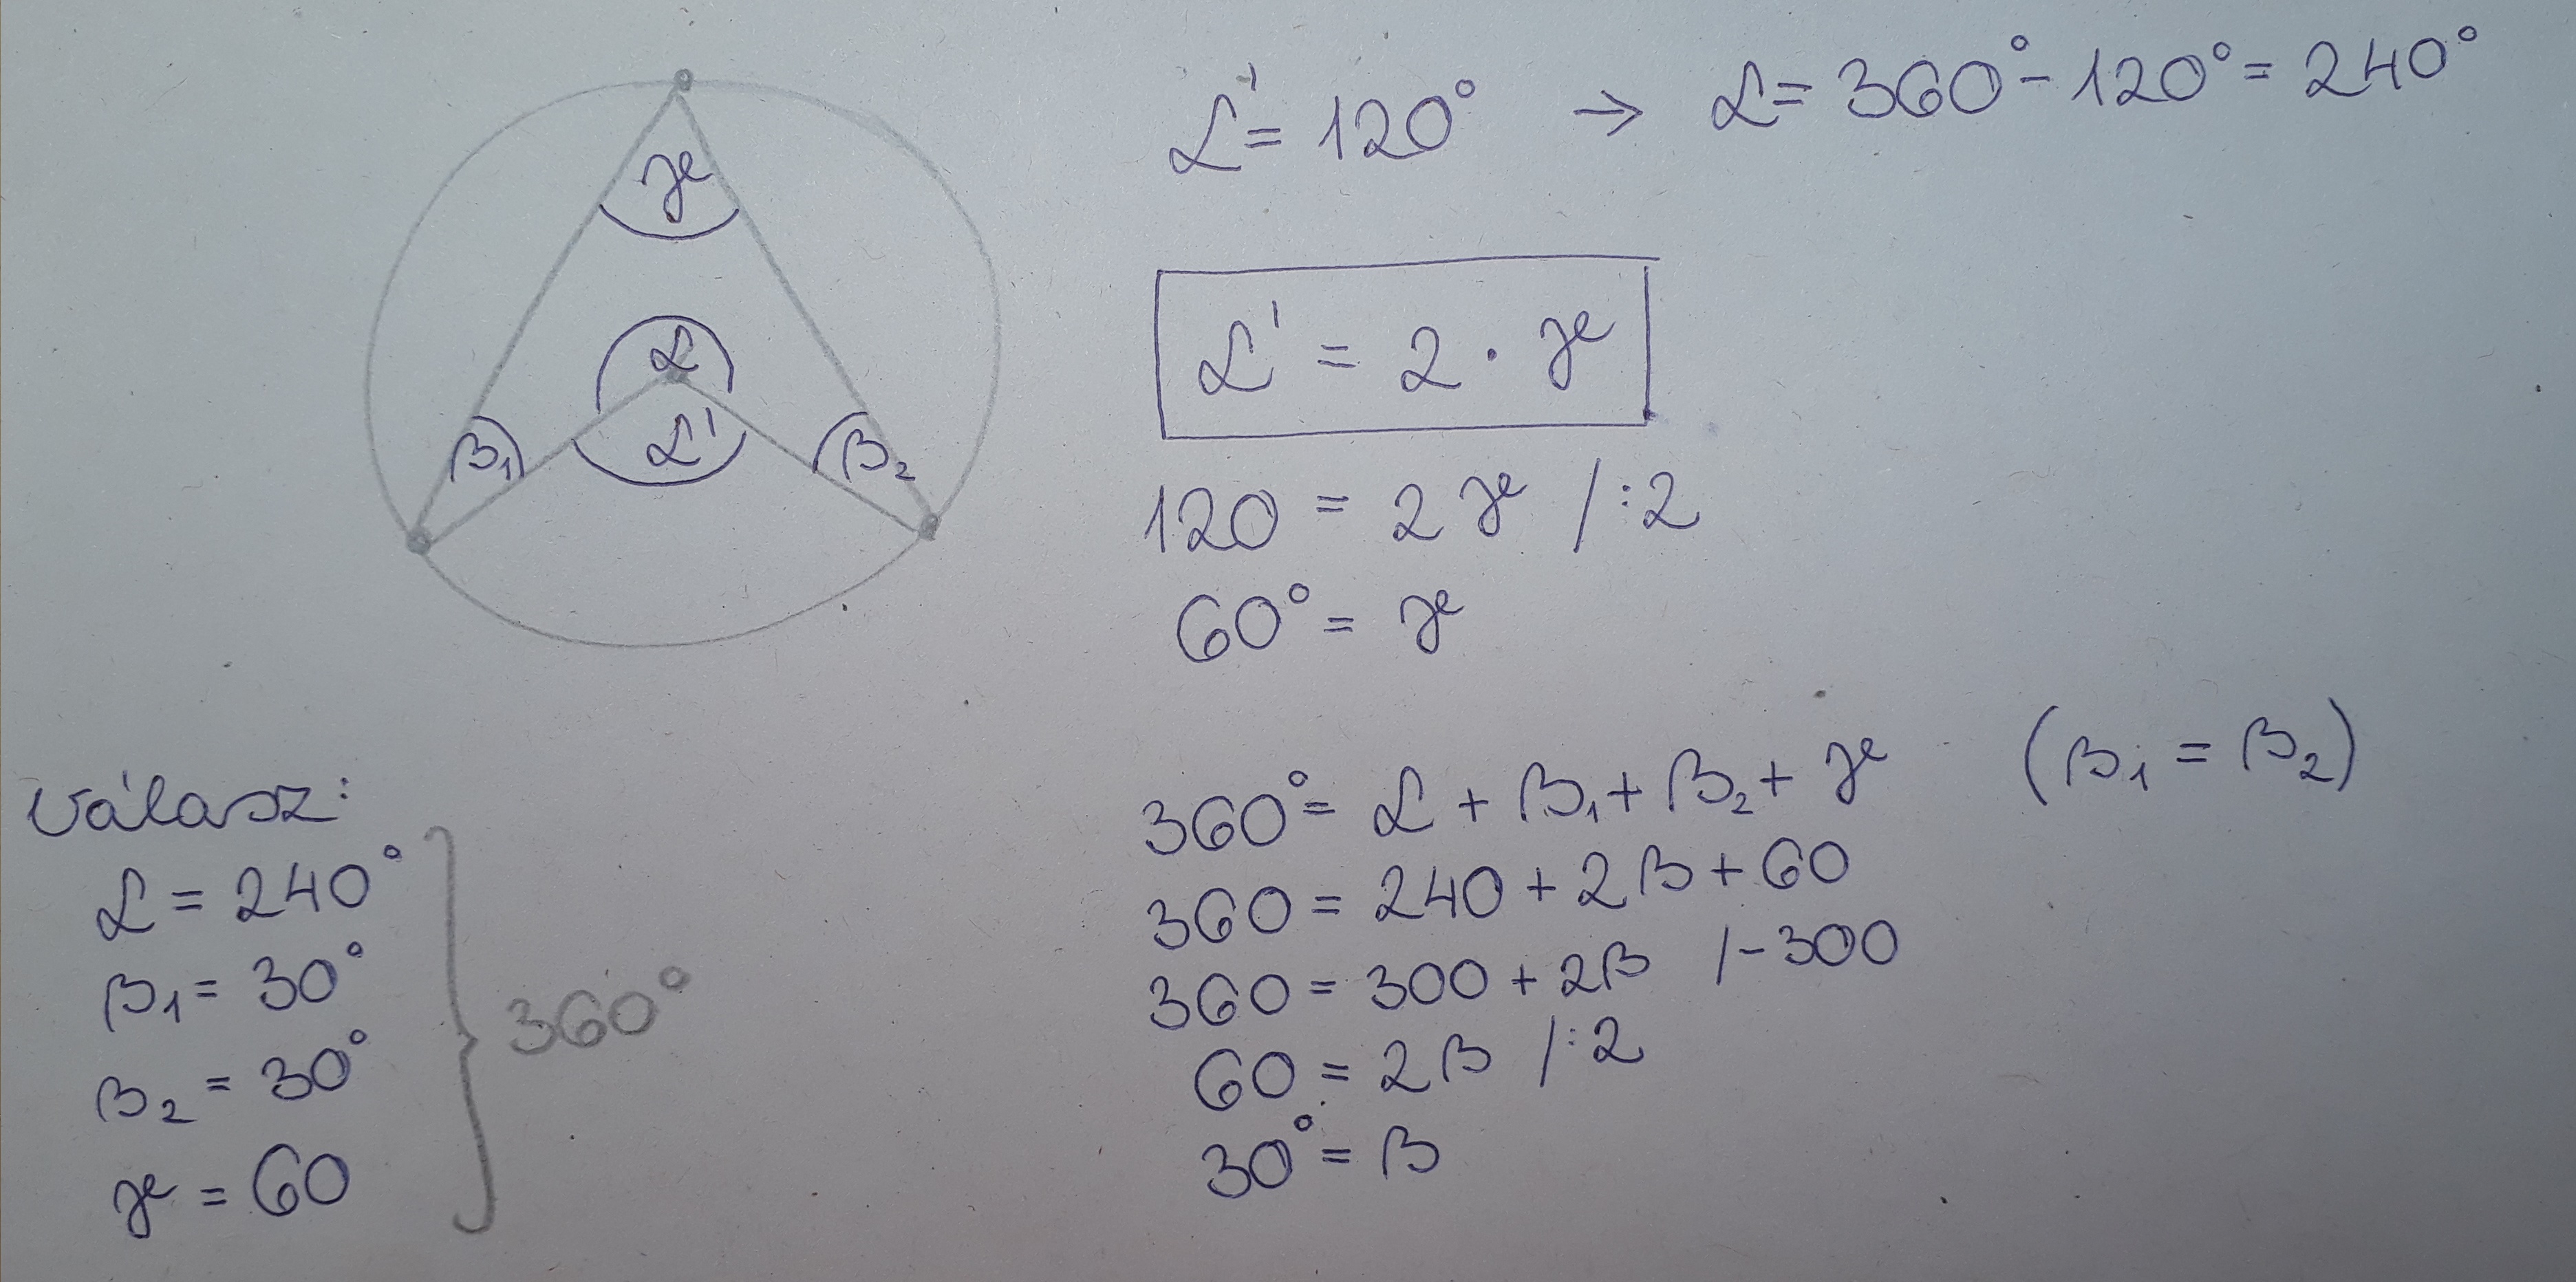 γ
α
α'
β₁
β₂
α' = 120° → α = 360° - 120° = 240°
α' = 2 · γ
120 = 2γ /:2
60° = γ
360° = α + β₁ + β₂ + γ (β₁ = β₂)
360 = 240 + 2β + 60
360 = 300 + 2β /-300
60 = 2β /:2
30° = β
Válasz:
α = 240°
β₁ = 30°
β₂ = 30°
γ = 60
360°